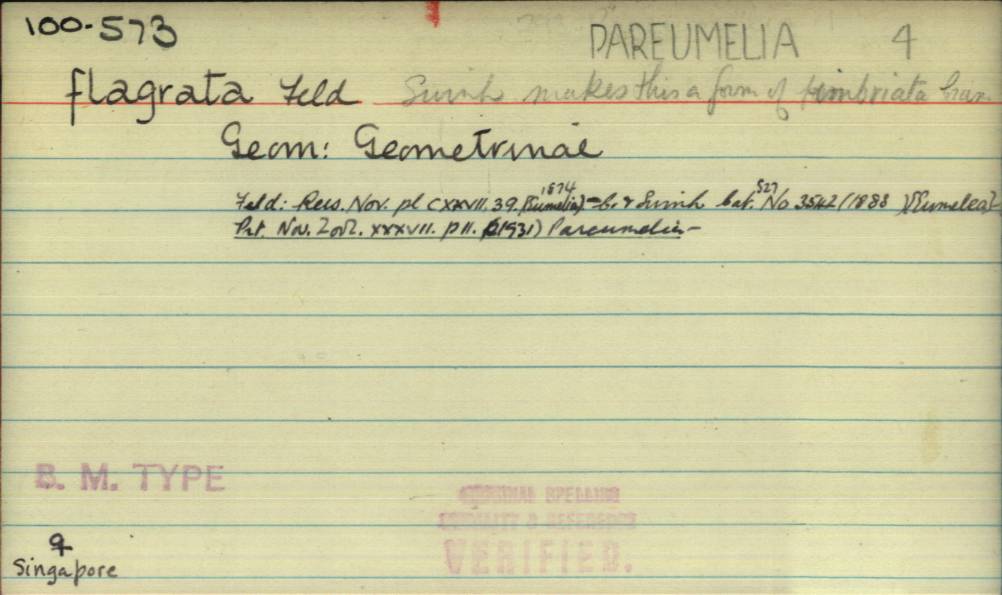 100-573
PAREUMELIA 4
flagrata Feld Swinh makes this a form of fimbriata Cram
Geom: Geometrinae
Feld: Reis. Nov. pl CXXVII. 39. 1874 (Eumelia) - C. & Swinh Cat. 527 No 3542 (1888) (Eumelea) -
Prt. Nov. Zool. XXXVII. p 11. (1931) Pareumelia -
B. M. TYPE
ORIGINAL SPELLING
LOCALITY & REFERENCE
VERIFIED.
♀
Singapore